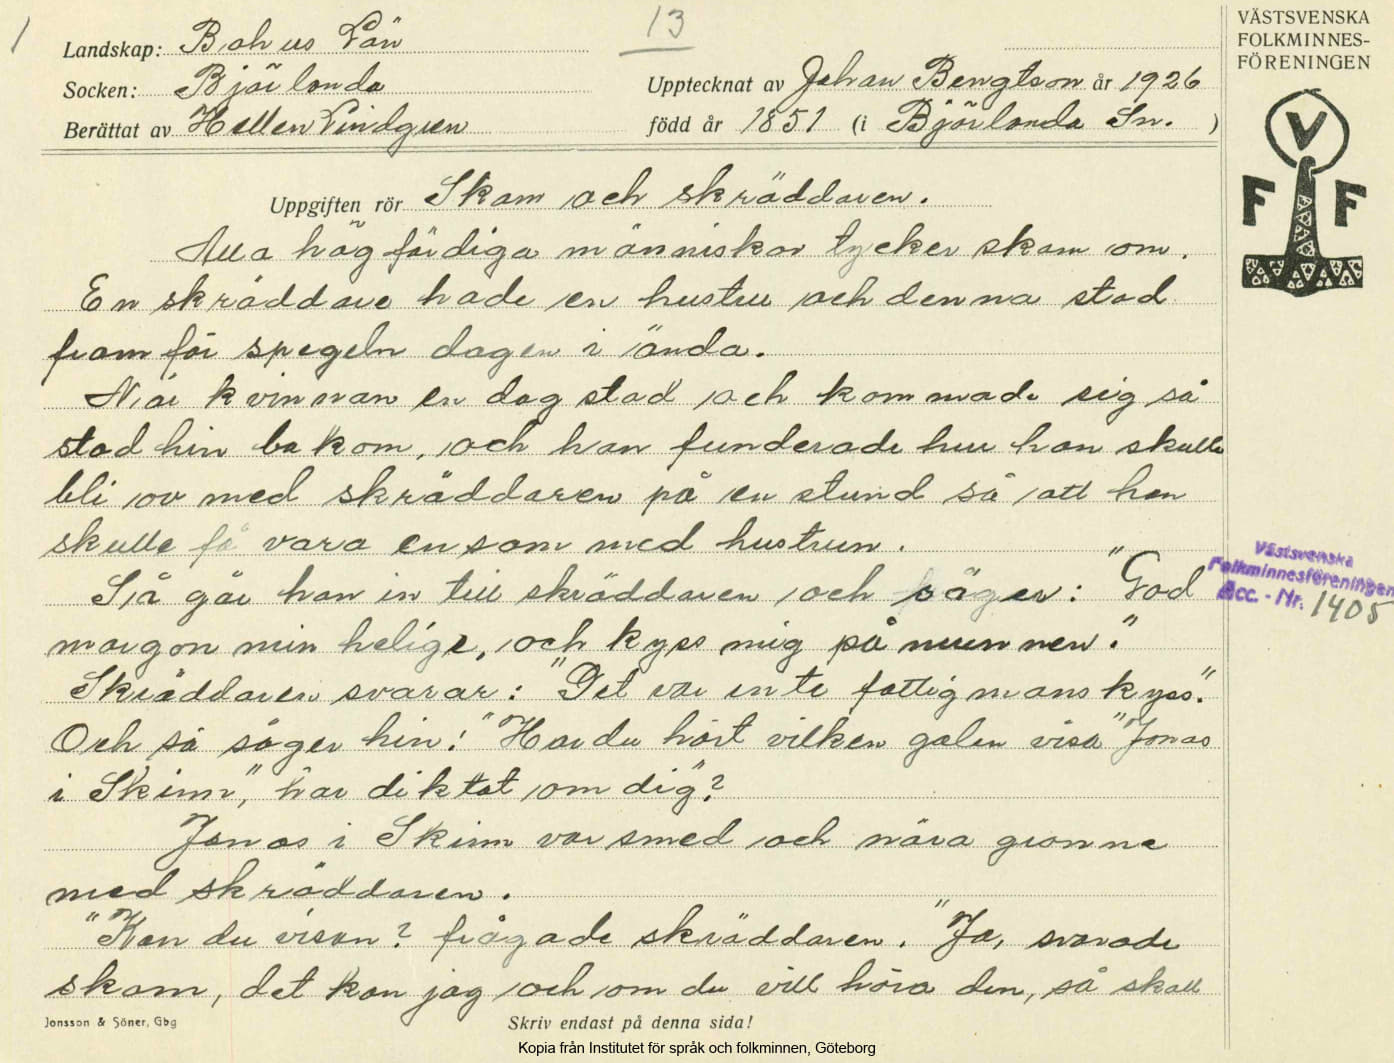 1
13
VÄSTSVENSKA
FOLKMINNES-
FÖRENINGEN
Landskap: Bohus Län
Socken: Björlanda
Upptecknat av Johan Bengtson år 1926
Berättat av Hellen Lindgren
född år 1851 (i Björlanda Sn. )
V
F F
Uppgiften rör Skam och skräddaren.
Alla högfärdiga människor tycker skam om.
En skräddare hade en hustru och denna stod
fram för spegeln dagen i ända.
När kvinnan en dag stod och kammade sig så
stod hin bakom, och han funderade hur han skulle
bli ov med skräddaren på en stund så att han
skulle få vara ensam med hustrun.
Så går han in till skräddaren och säger: "God
morgon min helige, och kyss mig på munnen."
Skräddaren svarar: "Det var inte fattigmans kyss."
Och så säger hin: "Har du hört vilken galen visa "Jonas
i Skinn", har diktat om dig"?
Jonas i Skinn var smed och nära granne
med skräddaren.
"Kan du visan? frågade skräddaren. "Ja, svarade
skam, det kan jag och om du vill höra den, så skall
Västsvenska
Folkminnesföreningen
Acc. - Nr. 1405
Jonsson & Söner, Gbg
Skriv endast på denna sida!
Kopia från Institutet för språk och folkminnen, Göteborg